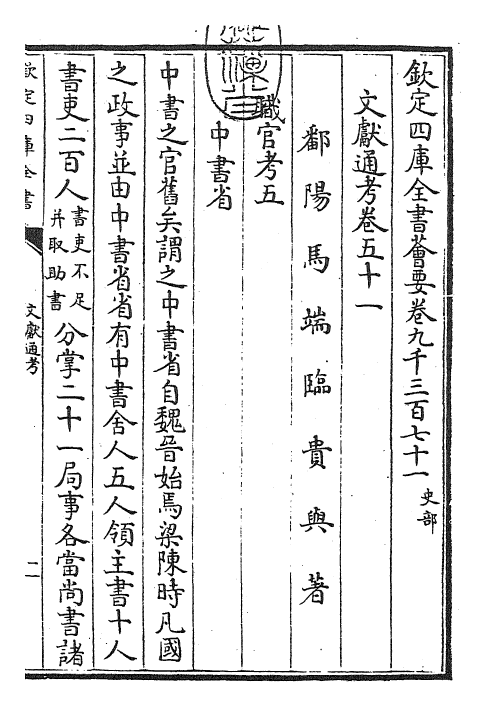 欽定四庫全書薈要卷九千三百七十一 史部
文獻通考卷五十一
鄱陽馬端臨貴與著
職官考五
中書省
中書之官舊矣謂之中書省自魏晉始焉梁陳時凡國
之政事並由中書省省有中書舍人五人領主書十人
書吏二百人書吏不足并取助書分掌二十一局事各當尚書諸
欽定四庫全書
文獻通考
二